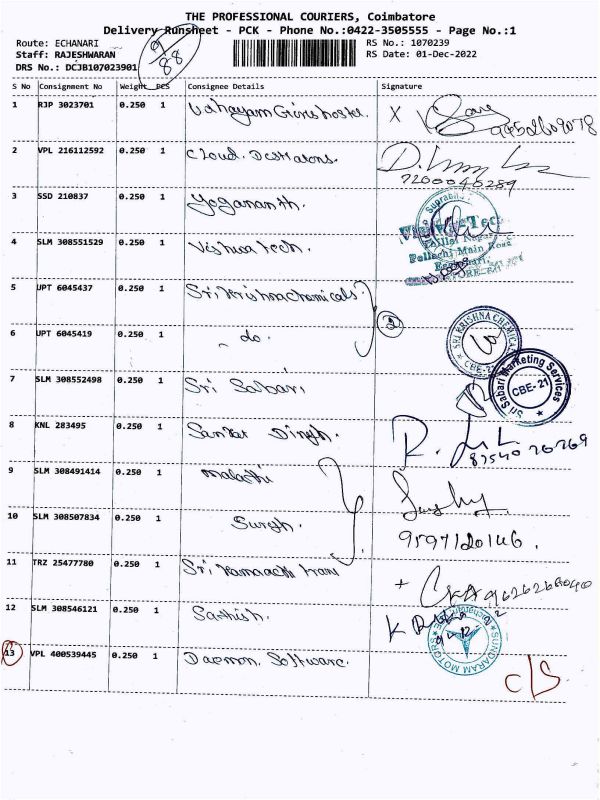 THE PROFESSIONAL COURIERS, Coimbatore
Delivery Runsheet - PCK - Phone No.:0422-3505555 - Page No.:1
Route: ECHANARI
RS No.: 1070239
Staff: RAJESHWARAN
RS Date: 01-Dec-2022
DRS No.: DCJB107023901
9/88
S No Consignment No Weight PCS Consignee Details Signature
1 RJP 3023701 0.250 1 X 9452609078
2 VPL 216112592 0.250 1 Cloud. 7200040289
3 SSD 210837 0.250 1 Yogananth.
4 SLM 308551529 0.250 1 Vishwa tech.
Pollachi Main Road
5 UPT 6045437 0.250 1 Sri Krishna chemicals
2
6 UPT 6045419 0.250 1 do.
SRI KRISHNA CHEMICAL
CBE-21
7 SLM 308552498 0.250 1 Sri Sabari
Sri Sabari Marketing Services
CBE-21
8 KNL 283495 0.250 1 Singh.
9 SLM 308491414 0.250 1 malathi
10 SLM 308507834 0.250 1
9597120146.
11 TRZ 25477780 0.250 1 Sri
12 SLM 308546121 0.250 1 Sathish.
SUNDARAM MOTORS
13 VPL 400539445 0.250 1 Daemon Software.
C/S